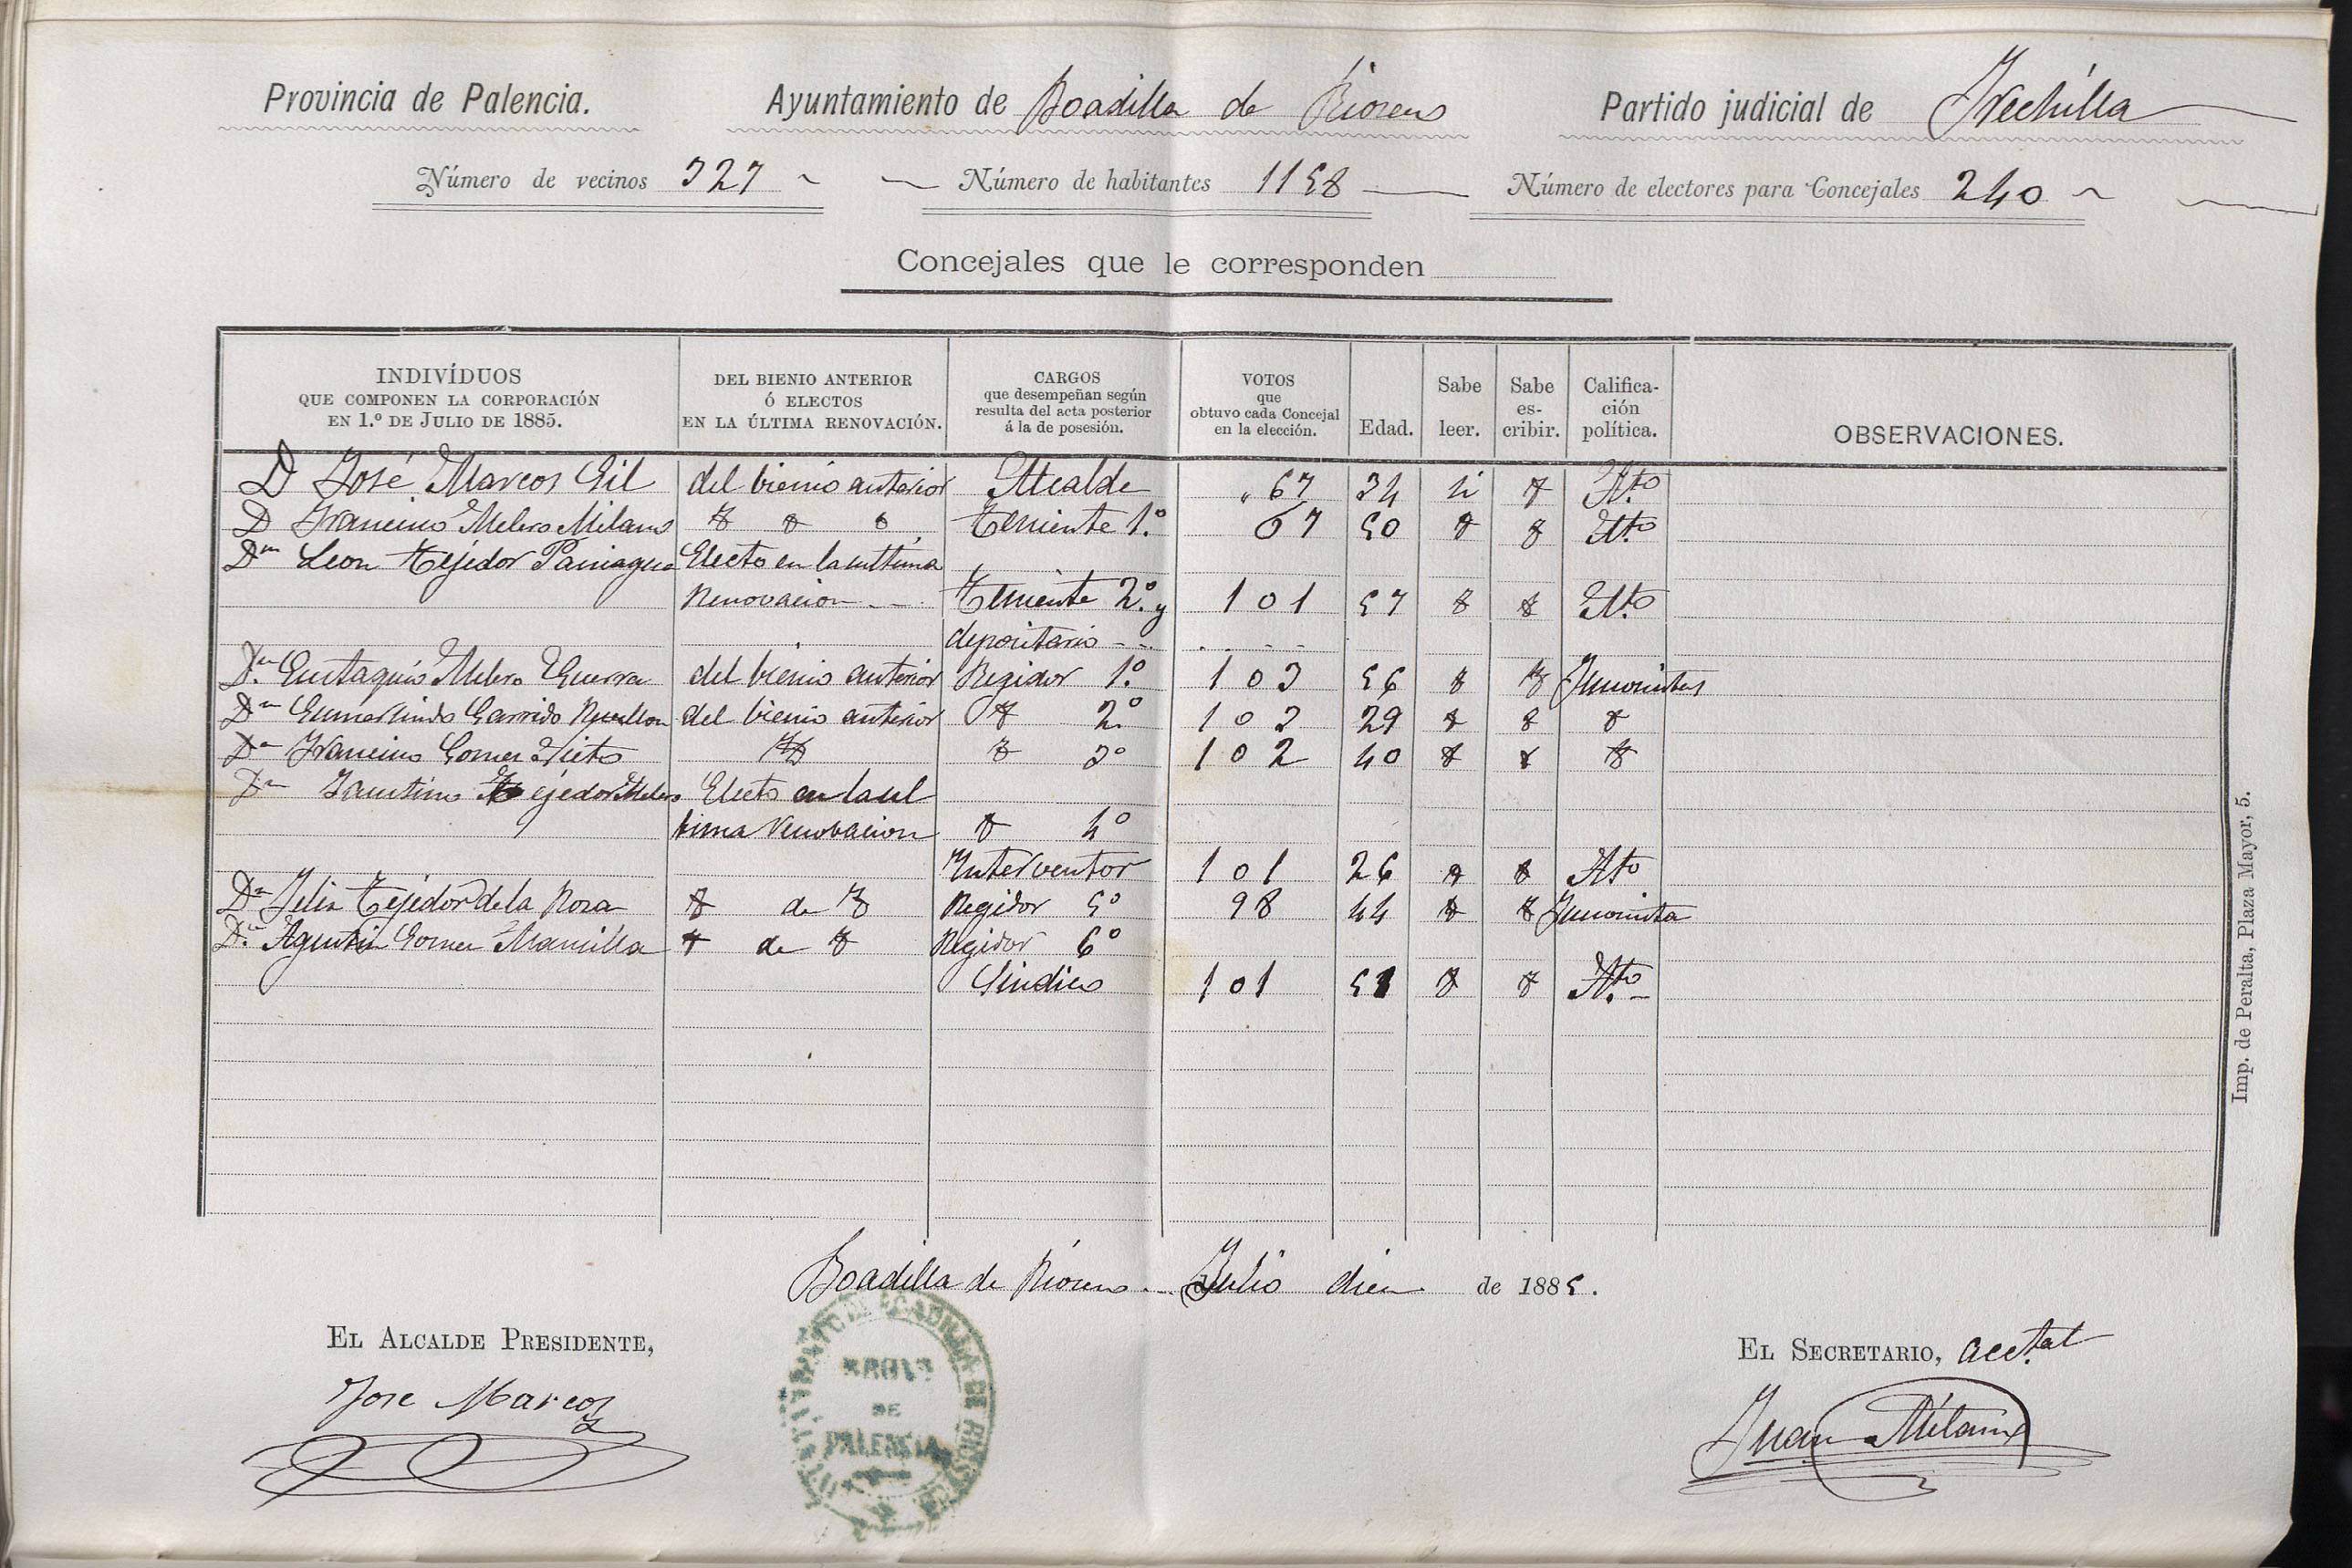 Provincia de Palencia. Ayuntamiento de Boadilla de Rioseco Partido judicial de Frechilla
Número de vecinos 327 Número de habitantes 1158 Número de electores para Concejales 240
Concejales que le corresponden
INDIVÍDUOS QUE COMPONEN LA CORPORACIÓN EN 1.º DE JULIO DE 1885. DEL BIENIO ANTERIOR Ó ELECTOS EN LA ÚLTIMA RENOVACIÓN. CARGOS que desempeñan según resulta del acta posterior á la de posesión. VOTOS que obtuvo cada Concejal en la elección. Edad. Sabe leer. Sabe es-cribir. Califica-ción política. OBSERVACIONES.
D José Marcos Gil del bienio anterior Alcalde 67 34 si Ato
D Francisco Melero Milano Teniente 1.º 67 50 Ato
Dn Leon Tejedor Paniagua Electo en la ultima
Renovacion Teniente 2.º y 101 57 Ato
depositario
Dn Eustaquio Melero Guerra del bienio anterior Regidor 1.º 103 56
Dn Gumersindo Garrido del bienio anterior 2.º 102 29
Dn Francisco Gomez Nieto 3º 102 40
Dn Faustino Tejedor Melero Electo en la ul
tima renovacion 4º
Interventor 101 26 Ato
Dn Felix Tejedor de la Rosa de Regidor 5º 98 44
Dn Agustin Gomez Mansilla de Regidor 6º
Sindico 101 51 Ato
Boadilla de Rioseco Julio diez de 1885.
EL ALCALDE PRESIDENTE,
Jose Marcos
AYUNTAMIENTO DE BOADILLA DE RIOSECO
DE
PALENCIA
EL SECRETARIO, accital
Juan Milano
Imp. de Peralta, Plaza Mayor, 5.